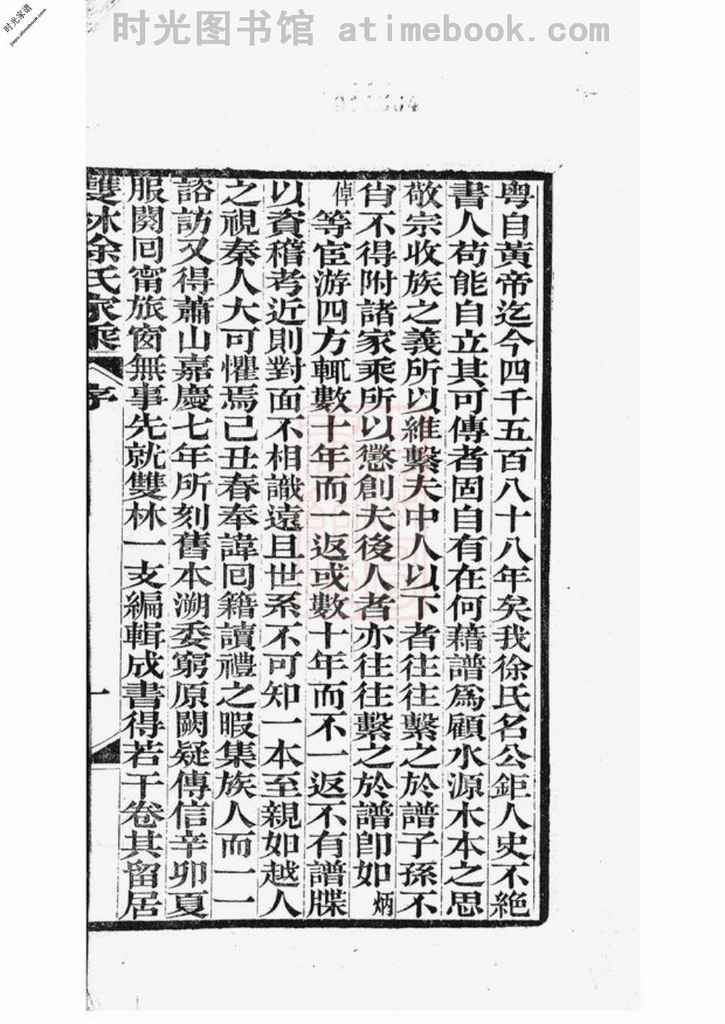 时光图书馆 atimebook.com
时光家谱
粤自黃帝迄今四千五百八十八年矣我徐氏名公鉅人史不絶
書人苟能自立其可傳者固自有在何藉譜爲顧水源木本之思
敬宗收族之義所以維繫夫中人以下者往往繫之於譜子孫不
肖不得附諸家乘所以懲創夫後人者亦往往繫之於譜卽如炳
倬等宦游四方輒數十年而一返或數十年而不一返不有譜牒
以資稽考近則對面不相識遠且世系不可知一本至親如越人
之視秦人大可懼焉己丑春奉諱囘籍讀禮之暇集族人而一一
諮訪又得蕭山嘉慶七年所刻舊本溯委窮原闕疑傳信辛卯夏
服闋囘甯旅窗無事先就雙林一支編輯成書得若干卷其留居
雙林徐氏家乘 序 一